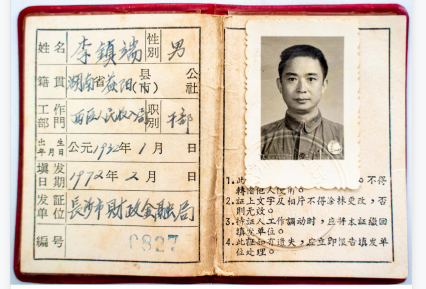 姓名 李鎮端 性别 男
籍贯 湖南省益阳县(市) 公社
工作部門 西区 收入局 职别 干部
出生年月日 公元1932年1月 日
填发日期 1972年2月 日
发証单位 長沙市財政金融局
編号 0827
1.此 。不得
轉借他人使用。
2.証上文字及相片不得涂抹更改，否
則无效。
3.持証人工作調动时，应将本証繳回
填发单位。
4.此証如有遺失，应立即报告填发单
位处理。